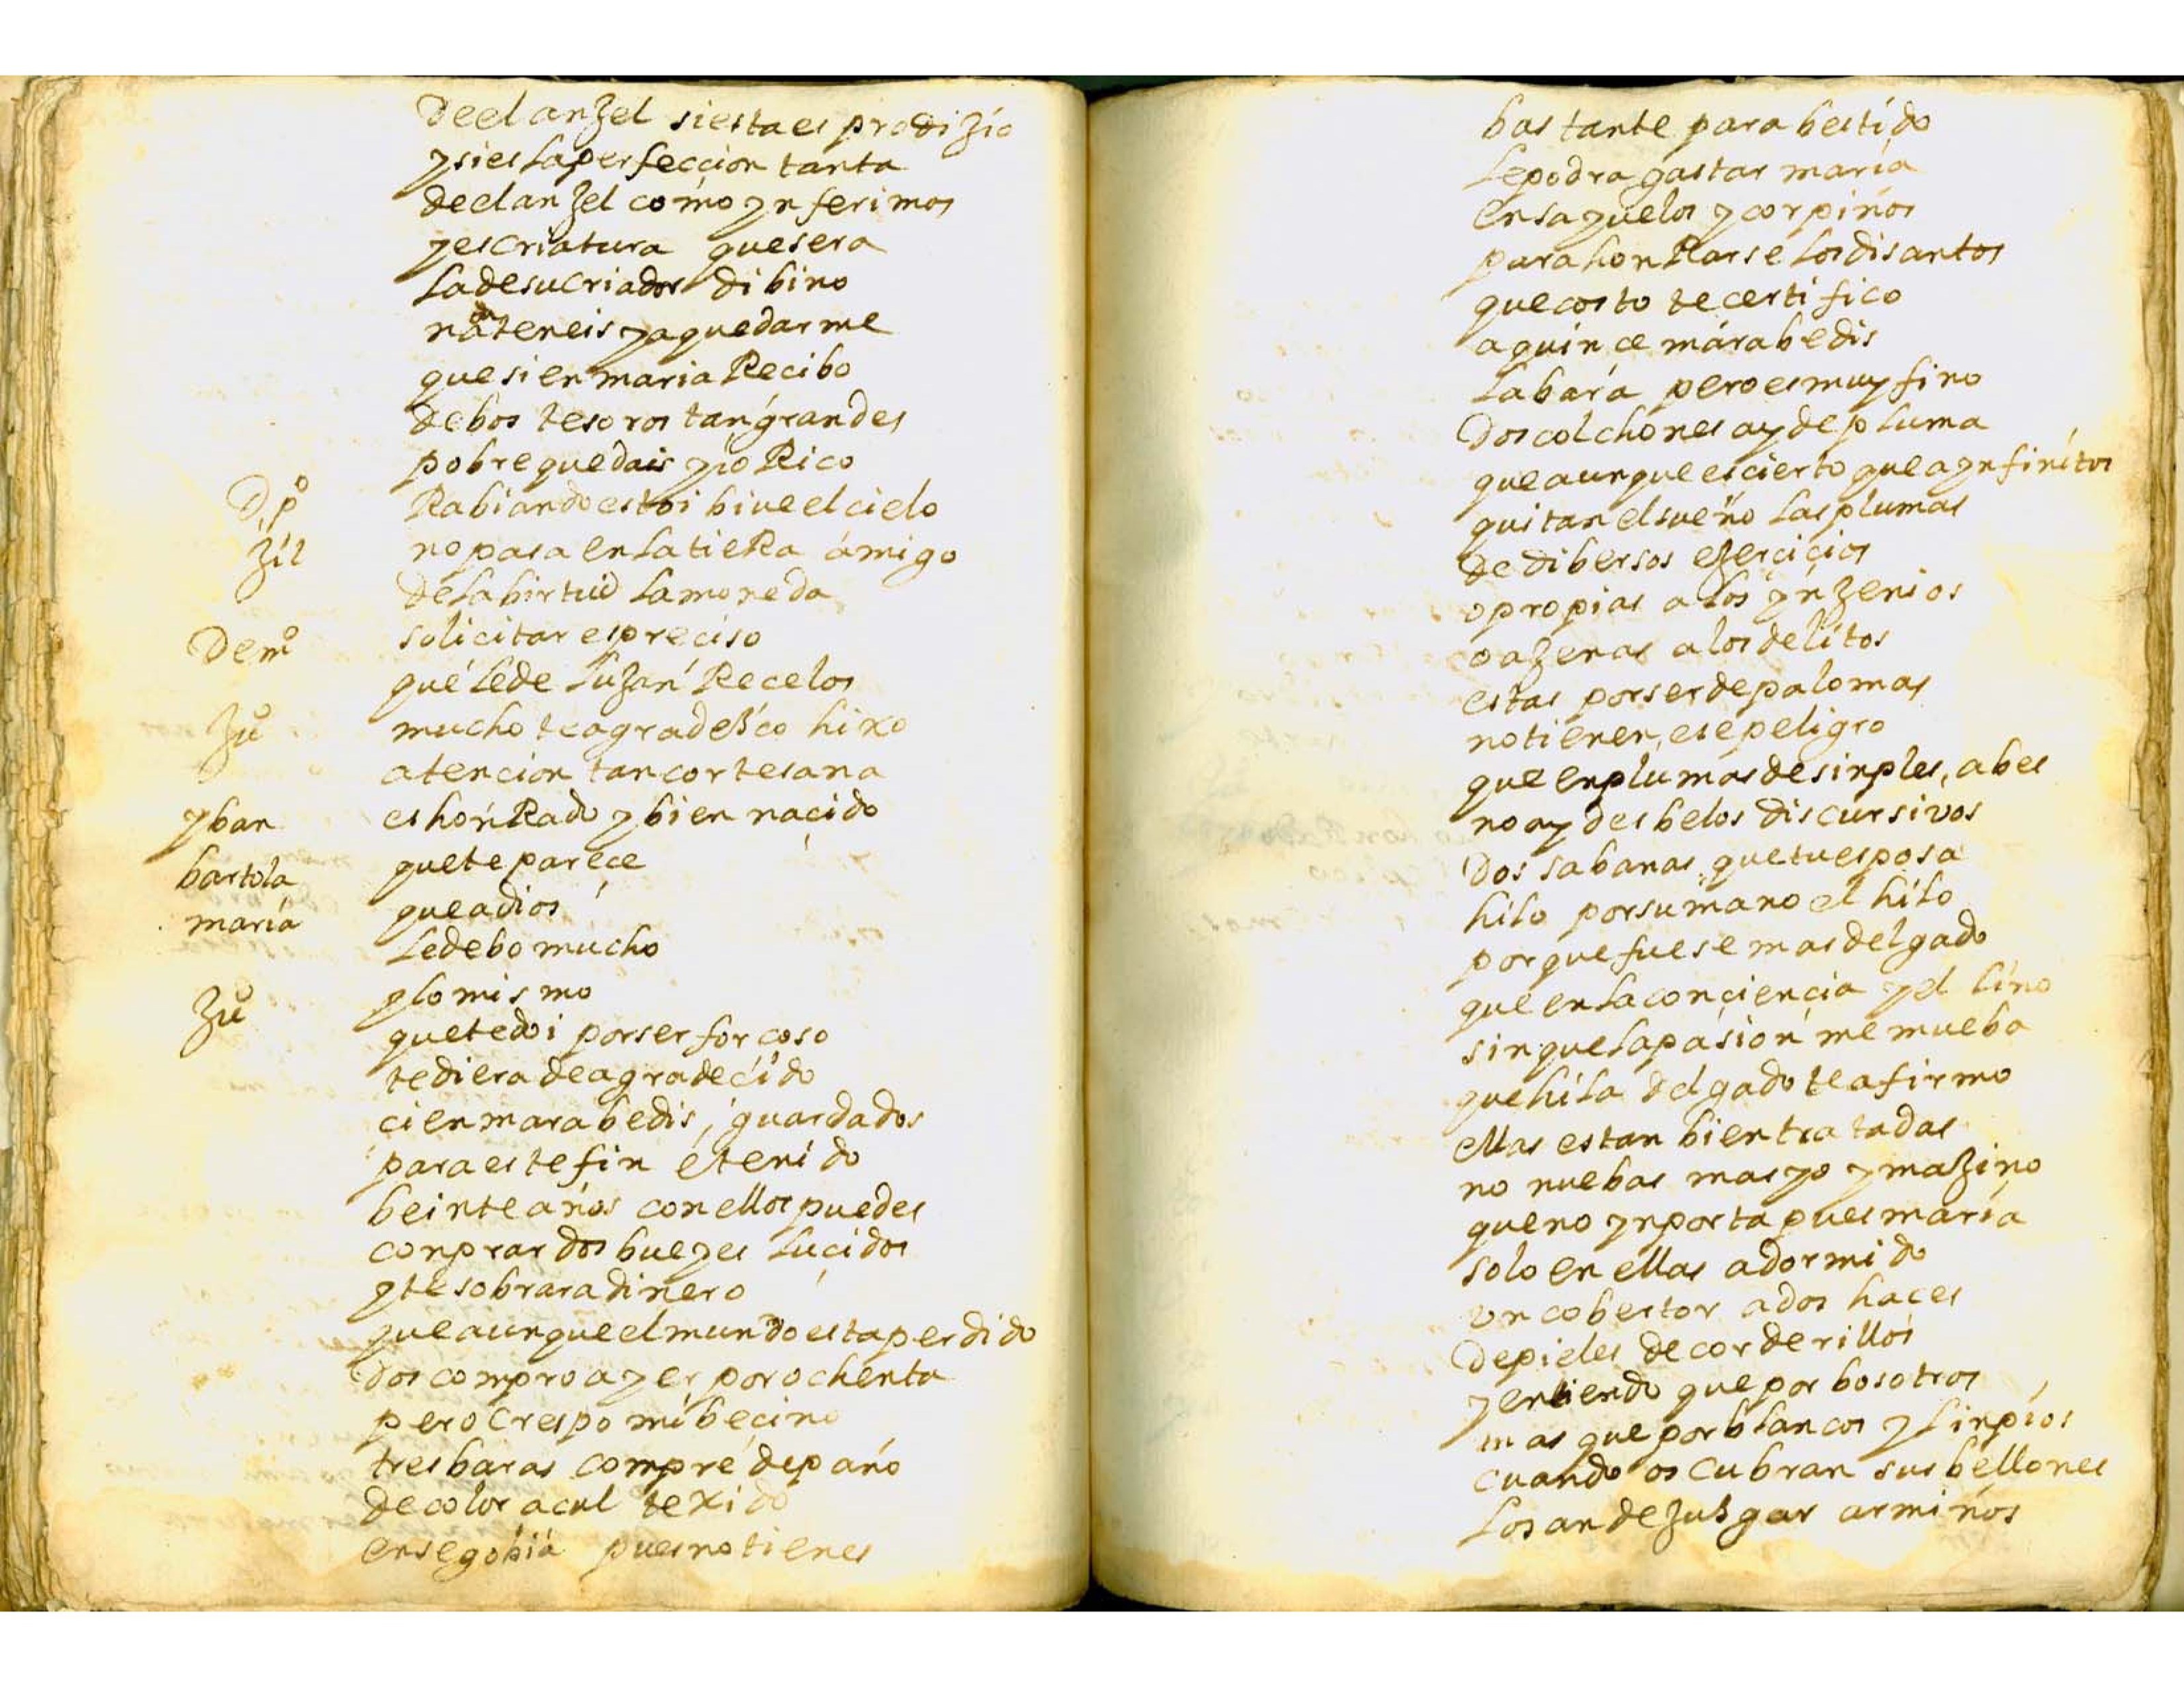 de el anzel si esta es prodizio
y si es la perfeccion tanta
de el anzel como ynferimos
y es criatura que sera
la de su criador dibino
no teneis ya que darme
que si en maria Recibo
de bos tesoros tan grandes
pobre quedais yio Rico
D, po Rabiando estoi bibe el cielo
zil no pasa en la tieRa amigo
de la birtud la moneda
Demo solicitar es preciso
que le de luzan Recelos
zuo mucho te agradesco hixo
atencion tan cortesana
es honRado y bien nacido
yban que te parece
bartola que a dios
maria le debo mucho
y lo mismo
zuo que te doi por ser forcoso
te diera de agradecido
cien marabedis, guardados
para este fin e tenido
beinte años con ellos puedes
conprar dos bueyes lucidos
y te sobrara dinero
que aunque el mundo esta perdido
dos compro ayer por ochenta
pero crespo mi becino
tres baras compre de paño
de color acul texido
en segobia pues no tienes
bastante para bestido
le podra gastar maria
en sayuelos y corpiños
para honRarse los disantos
que costo te certifico
a quince marabedis
la bara pero es muy fino
dos colchones ay de pluma
que aunque es cierto que a ynfinitos
quitan el sueño las plumas
de dibersos ezercicios
o propias a los ynzenios
o azenas a los delitos
estas por ser de palomas
no tienen, ese peligro
que en plumas de sinples, abes
no ay desbelos discursivos
dos sabanas que tu esposa
hilo por su mano el hilo
porque fuese mas delgado
que en la conciencia y el lino
sin que la pasion me mueba
que hila delgado te afirmo
ellas estan bien tratadas
no nuebas mas yo ymazino
que no ynporta pues maria
solo en ellas a dormido
un cobertor a dos haces
de pieles de corderillos
y entiendo que por bosotros
mas que por blancos y linpios
cuando os cubran sus bellones
los an de zuzgar armiños